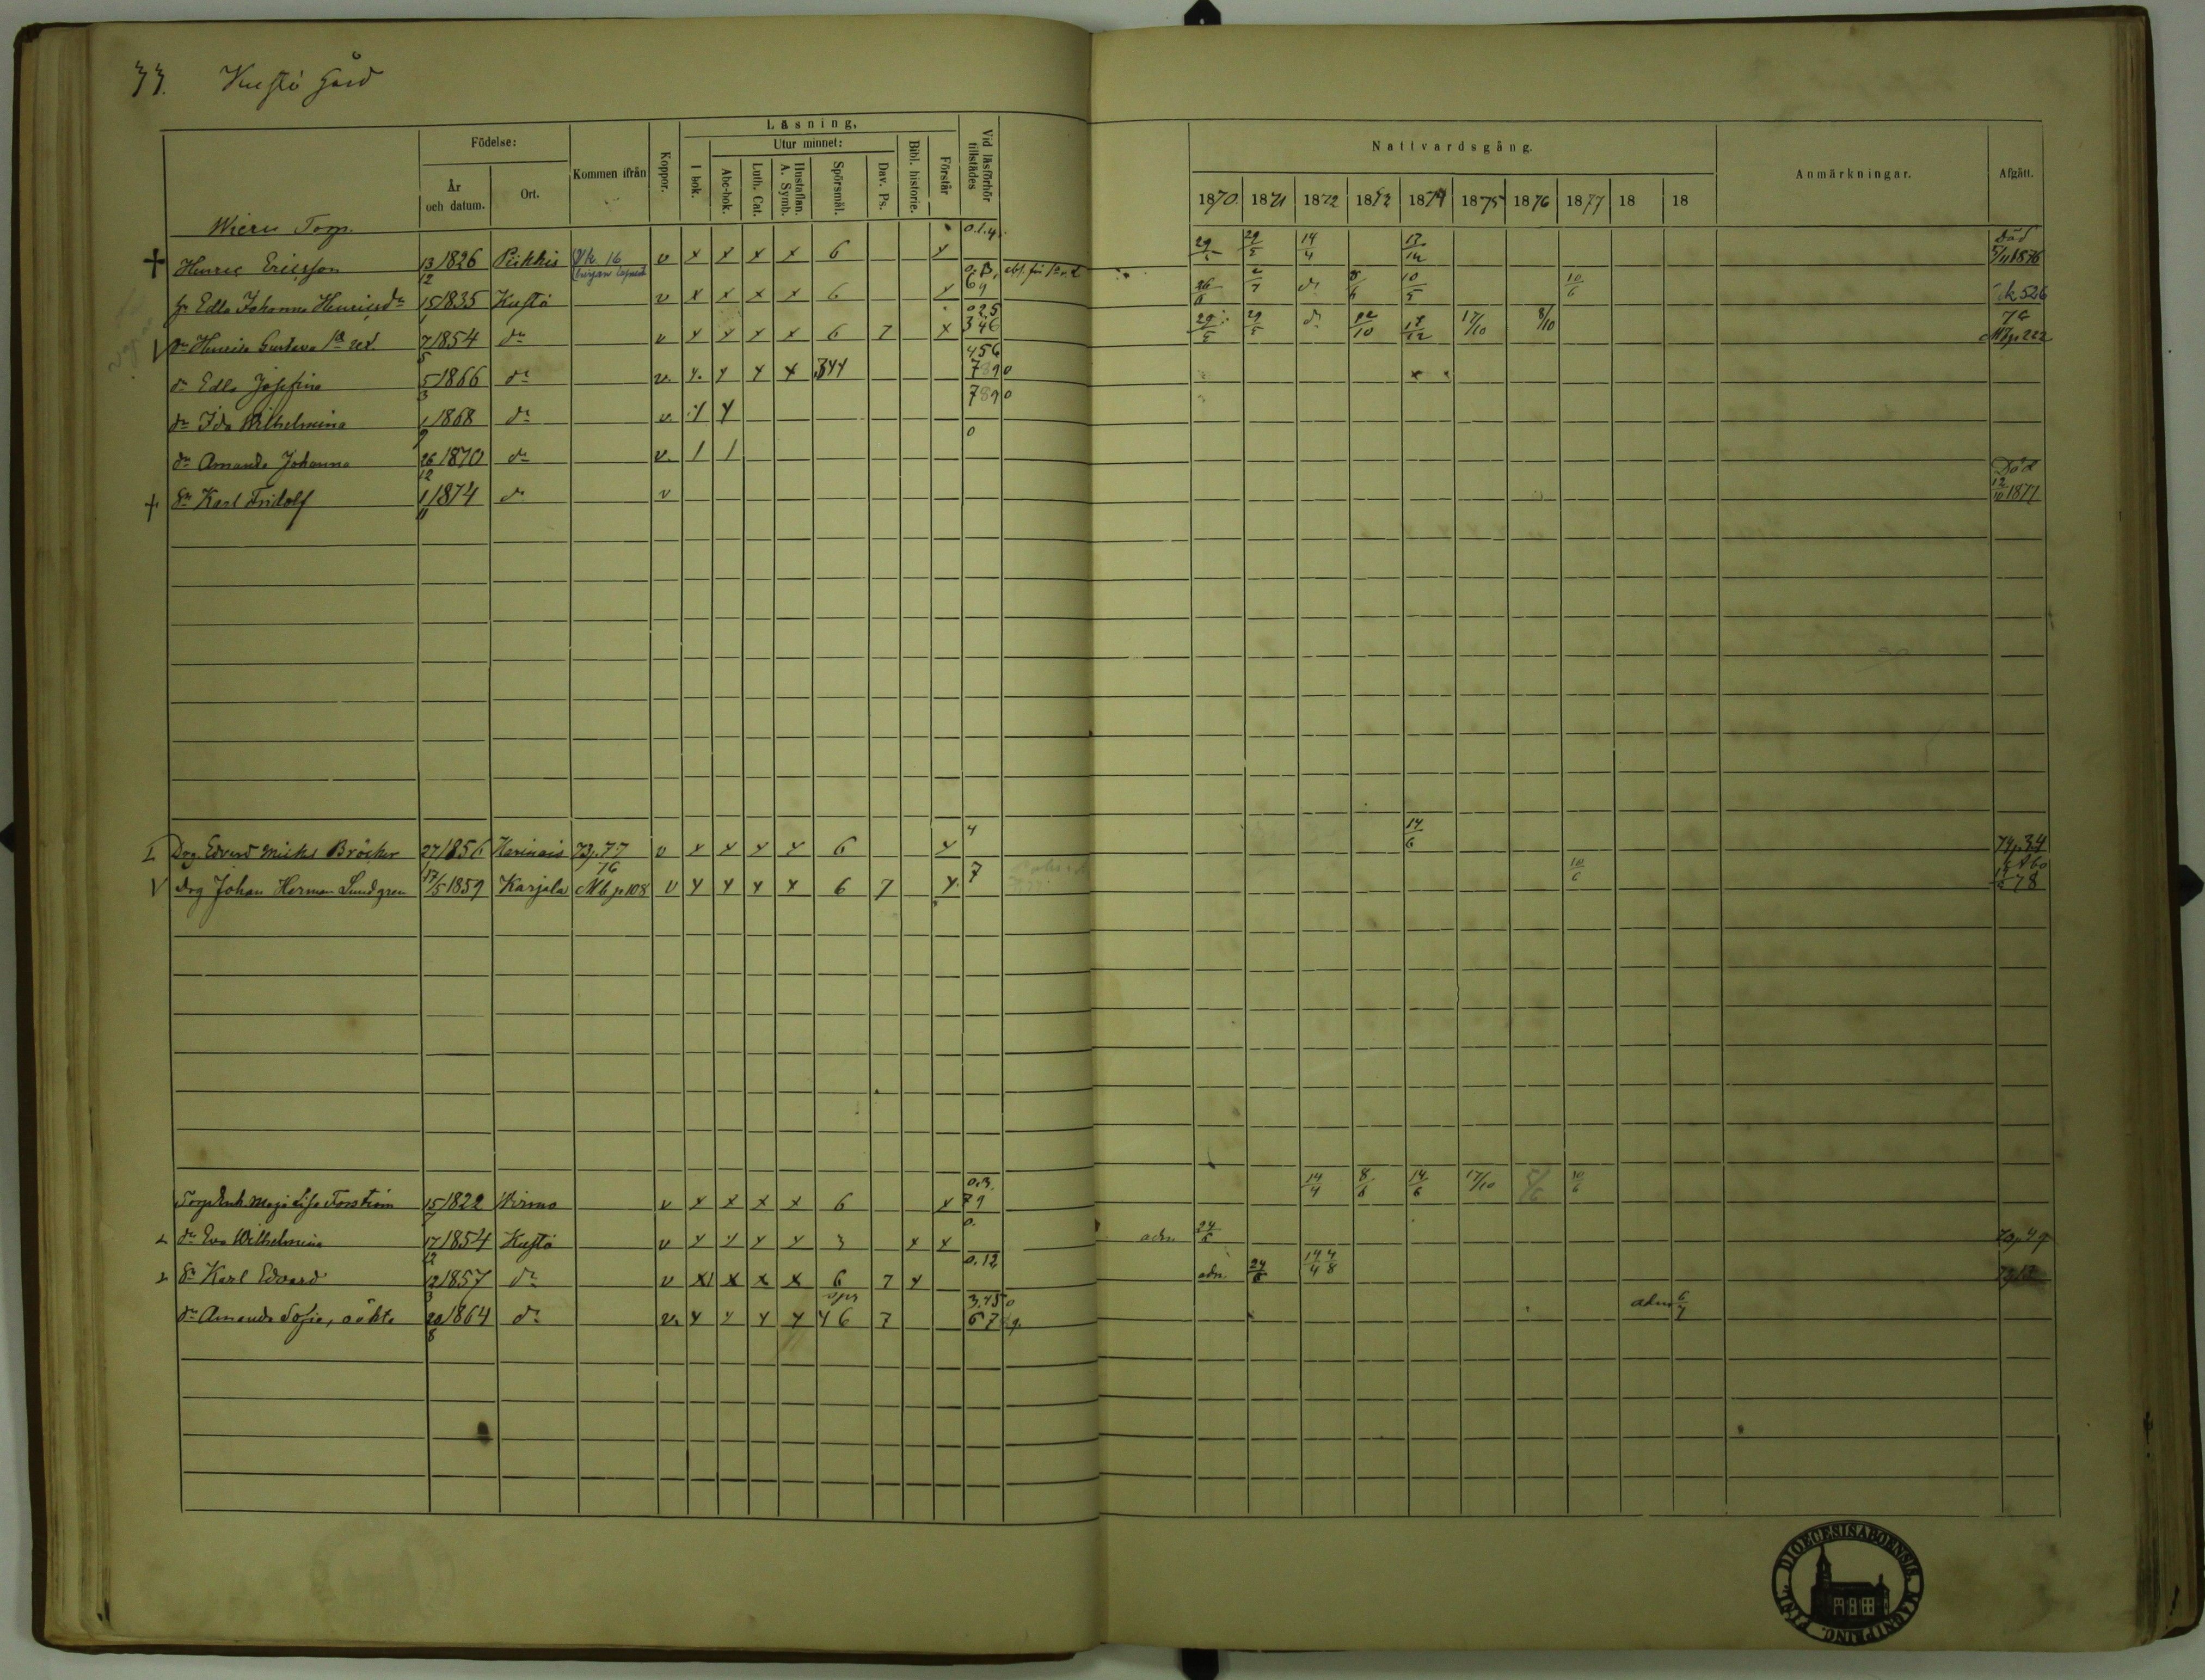 77. Kustö gård
Läsning,
Födelse: Kommen ifrån Koppor. I bok. Utur minnet: Bibl. historie. Förstår Vid läsförhör tillstädes
År och datum. Ort. Abc-bok. Luth. Cat. Hustaflan. A. Symb. Spörsmål. Dav. Ps.
Nattvardsgång. Anmärkningar. Afgått.
1870 1871 1872 1873 1874 1875 1876 1877 18 18
Wieru Torp.
Henric Ericsson 13/12 1826 Piikkis 16 v x x x x 6 x 0.1.4. 14/4 Död 5/11 1876
Edla Johanna Henricsdr 15/1 1835 Kustö v x x x x 6 x 69 26/6 2/7 do 8/6 10/5 10/6
dr Henrica Gustava 7/5 1854 do v x x x x 6 7 x 346 29/5 29/5 do 12/10 17/10 8/10 p 222
dr Edla Josefina 5/3 1866 do v. x x x x 456 7890
dr Ida Wilhelmina 1/9 1868 do v x x 7890
dr Amanda Johanna 26/12 1870 do v. 1 1 0
Sn Karl Fridolf 1/11 1874 do v Död 12/10 1877
Drg. Edvard Mickel Bröcker 27/9 1856 Karinais 73 p. 77 v x x x x 6 x 4 14/6 74 p. 34
Drg Johan Herman Lundgren 17/5 1859 Karjala 76 Mb p 108 v x x x x 6 7 x 7 10/6 78
Torp.Enk. Maja Lisa Forström 15/7 1822 Wirmo v x x x x 6 x 79 14/4 8/6 14/6 17/10 10/6
dr Eva Wilhelmina 17/12 1854 Kustö v x x x x 3 x x 0. adm. 24/6
Sn Karl Edvard 12/3 1857 do v x x x x 6 7 x 0.12 adm. 24/6 14/4 4/8
dr Amanda Sofia, oäkta 20/8 1864 do v. x x x x 4 6 7 3.45 0 67 9 adm 6/7
DIOECESIS ABOENSIS. MAGNI PRINC. FINL.